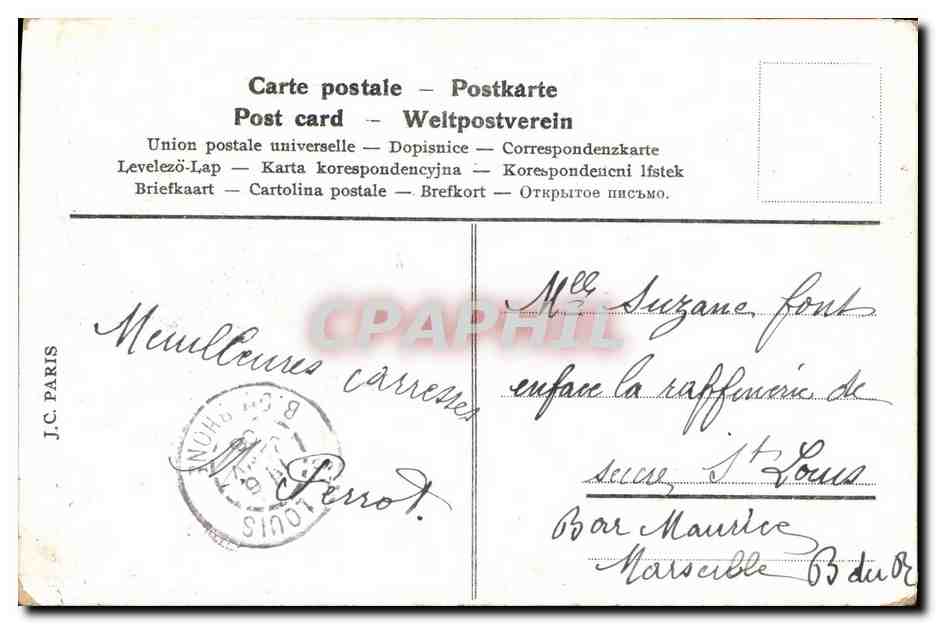 Carte postale — Postkarte
Post card — Weltpostverein
Union postale universelle — Dopisnice — Correspondenzkarte
Levelezö-Lap — Karta korespondencyjna — Korespondencni lfstek
Briefkaart — Cartolina postale — Brefkort — Открытое письмо.
J.C. PARIS
Meuilleures carresses
M Perrot.
LOUIS
B. CH. RHONE
CPAPHIL
Mlle Suzane font
enface la raffinerie de
sucre, St Louis
Bar Maurice
Marseille B du R